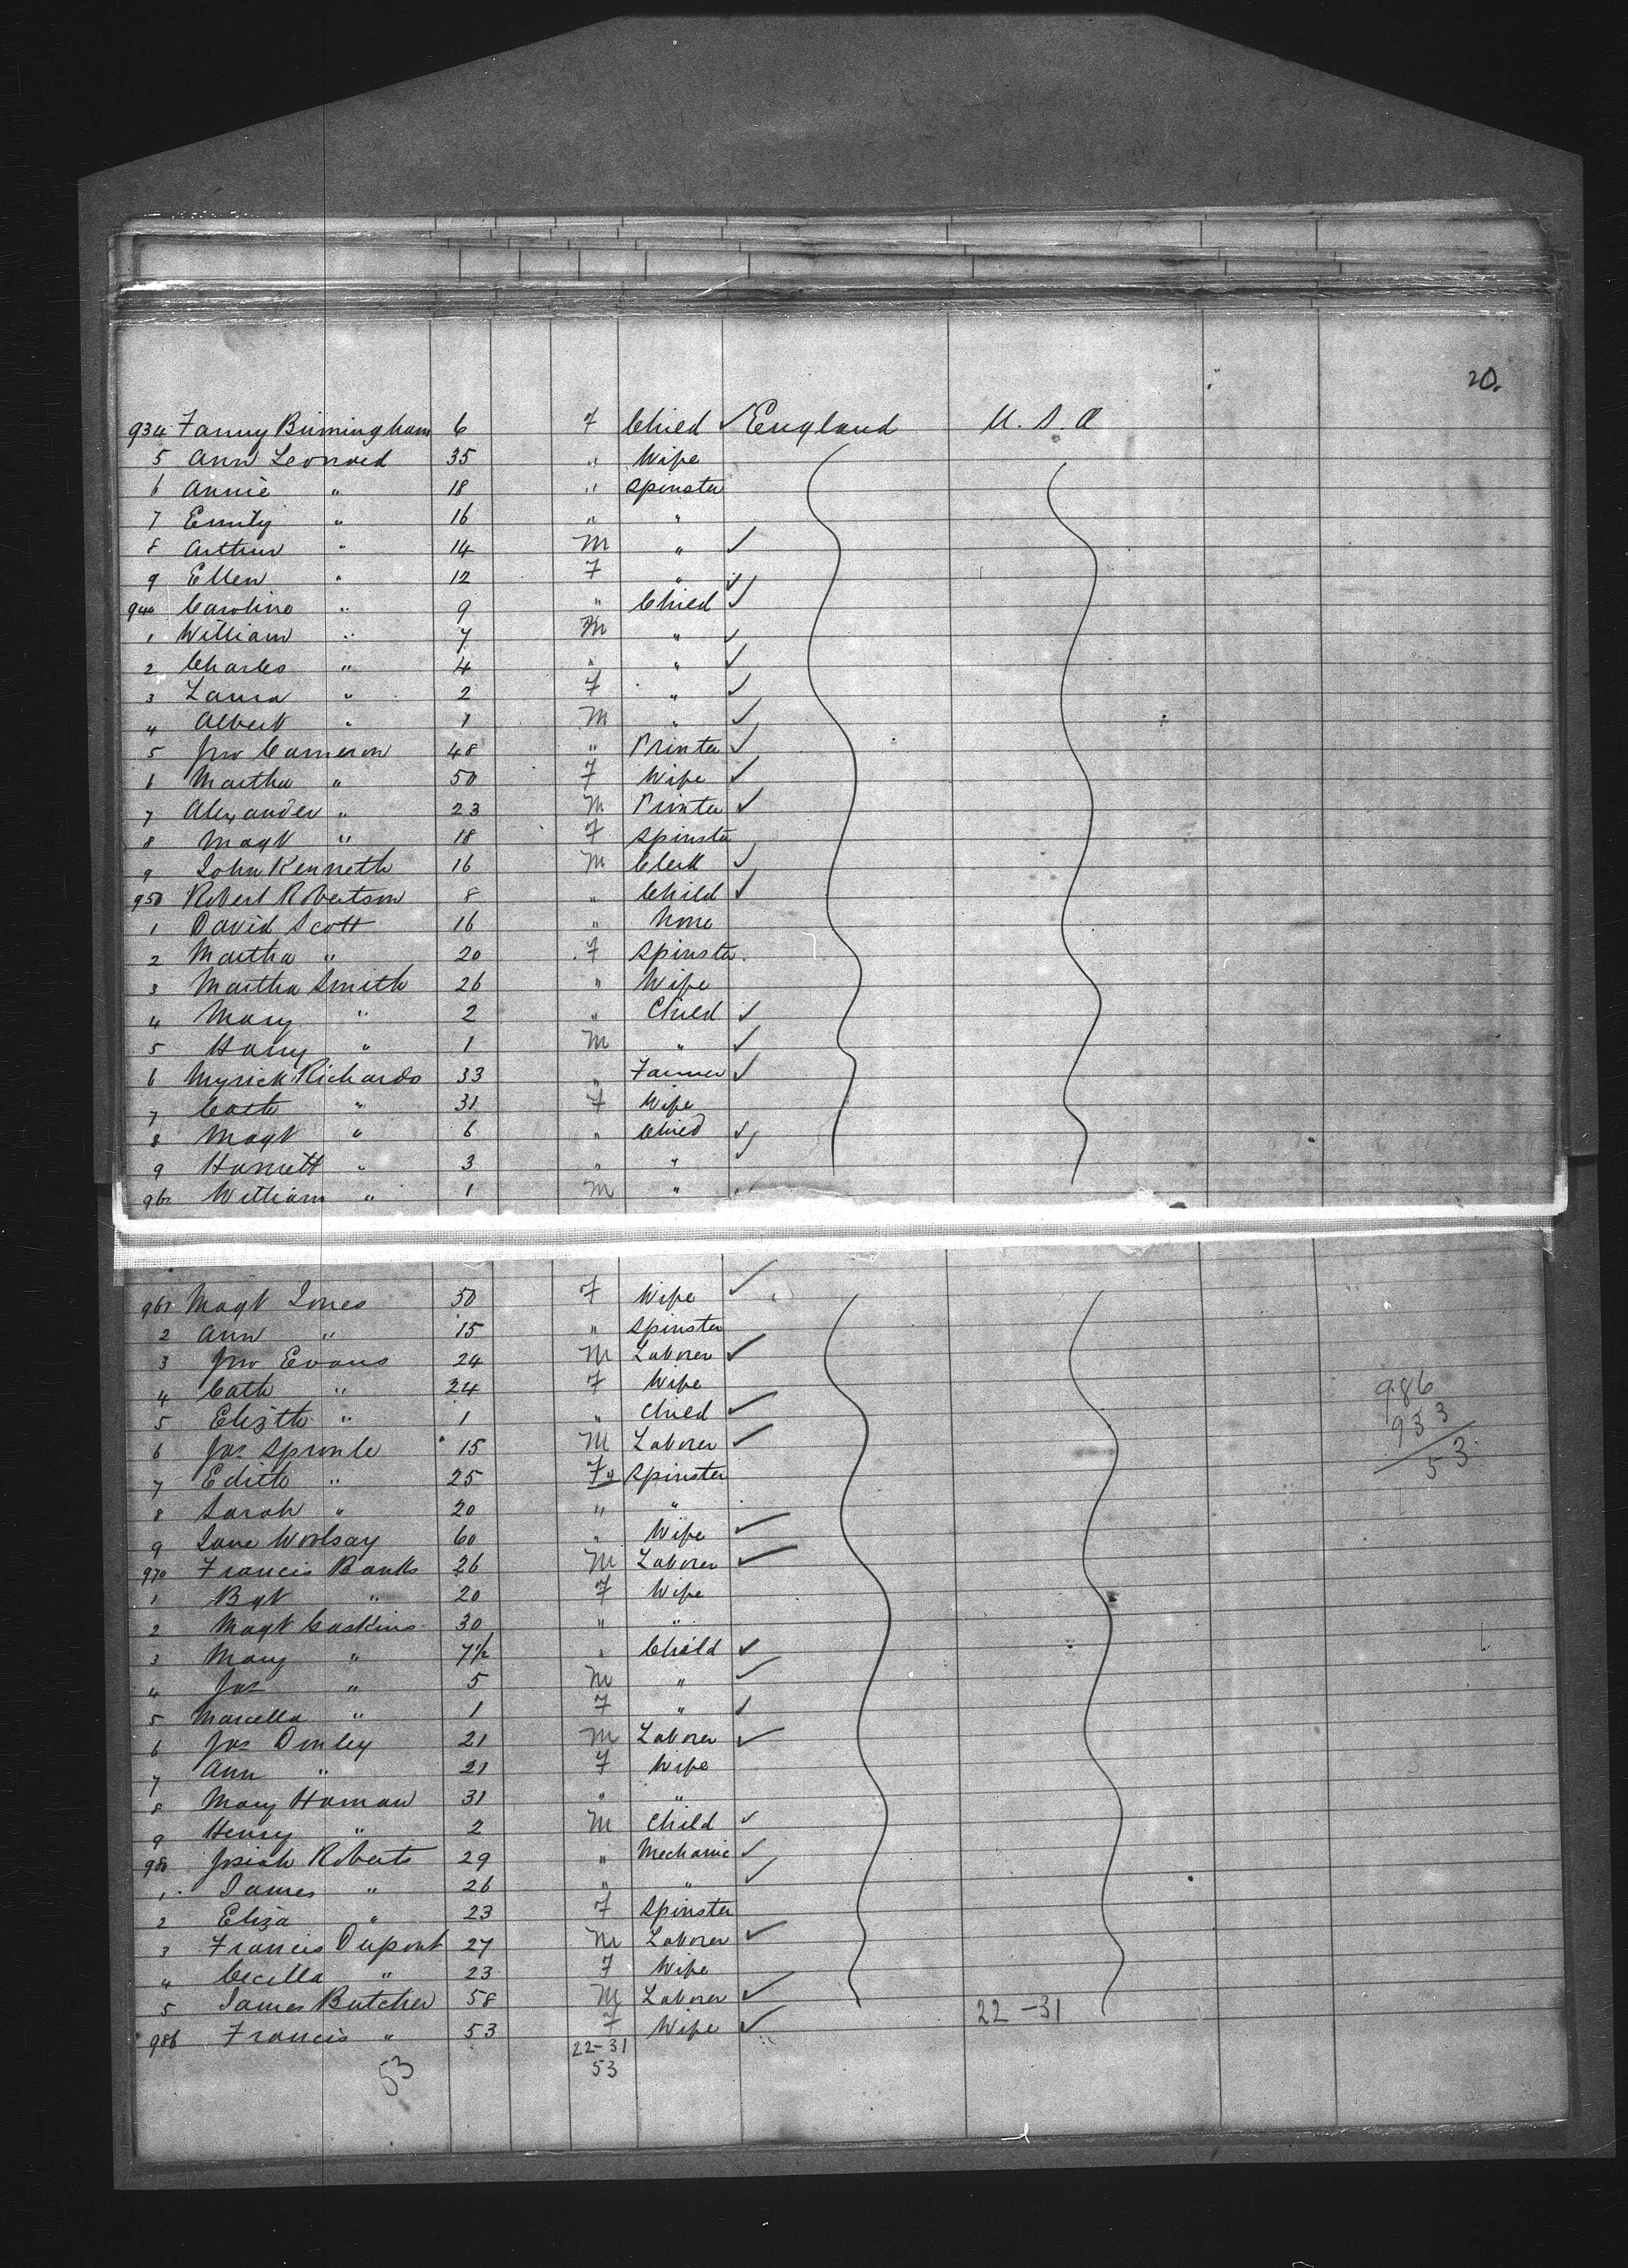 20.
934 Fanny Birmingham 6 F Child ✓ England U.S.A
5 Ann Leonard 35 " Wife
6 Annie " 18 " Spinster
7 Emily " 16 " "
8 Arthur " 14 M " ✓
9 Ellen " 12 F " ✓
940 Caroline " 9 " Child ✓
1 William " 7 M " ✓
2 Charles " 4 " " ✓
3 Laura " 2 F " ✓
4 Albert " 1 M " ✓
5 Jno Cameron 48 " Printer ✓
6 Martha " 50 F Wife ✓
7 Alexander " 23 M Printer ✓
8 Magt " 18 F Spinster
9 John Kenneth 16 M Clerk ✓
950 Robert Robertson 8 " Child ✓
1 David Scott 16 " None
2 Martha " 20 F Spinster
3 Martha Smith 26 " Wife
4 Mary " 2 " Child ✓
5 Harry " 1 M " ✓
6 Myrick Richards 33 " Farmer ✓
7 Cath " 31 F Wife
8 Magt " 6 " Child ✓
9 Harriett " 3 " " ✓
960 William " 1 M "
961 Magt Jones 50 F Wife ✓
2 Ann " 15 " Spinster
3 Jno Evans 24 M Laborer ✓
4 Cath " 24 F Wife
5 Elizth " 1 " Child ✓
6 Jas Sproule 15 M Laborer ✓
7 Edith " 25 F " Spinster
8 Sarah " 20 " "
9 Jane Woolsay 60 " Wife ✓
970 Francis Banks 26 M Laborer ✓
1 Bgt " 20 F Wife
2 Magt Caskins 30 " "
3 Mary " 7½ " Child ✓
4 Jas " 5 M " ✓
5 Marcella " 1 F " ✓
6 Jas Donley 21 M Laborer ✓
7 Ann " 21 F Wife
8 Mary Haman 31 " "
9 Henry " 2 M Child ✓
980 Josiah Roberts 29 " Mechanic ✓
1 James " 26 " " ✓
2 Eliza " 23 F Spinster
3 Francis Dupont 27 M Laborer ✓
4 Cecilla " 23 F Wife
5 James Butcher 58 M Laborer ✓
986 Francis " 53 F Wife ✓
22-31
22-31
53
53
986
933
53